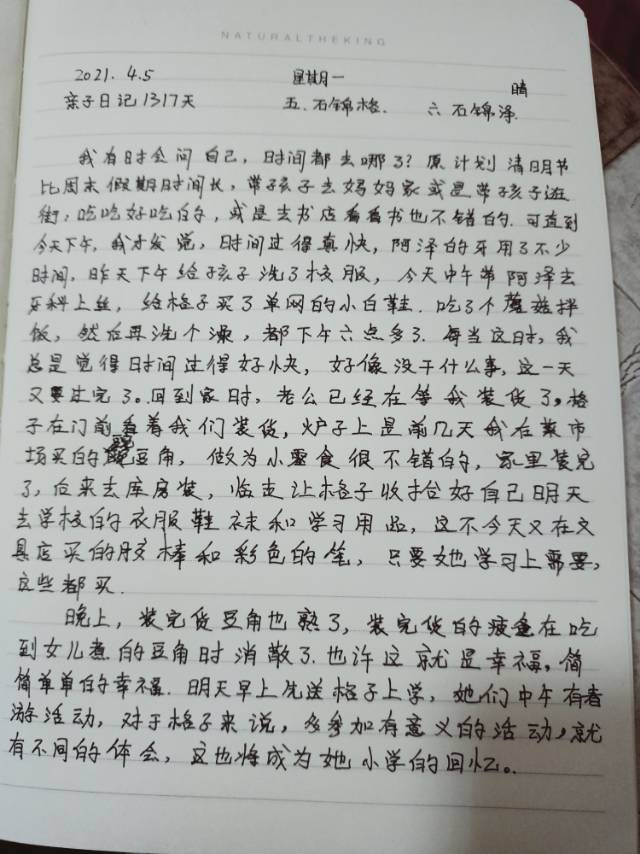 NATURALTHEKING
2021.4.5 星期一 晴
亲子日记1317天 五.石锦格. 六 石锦泽.
我有时会问自己，时间都去哪了？原计划清明节
比周末假期时间长，带孩子去妈妈家或是带孩子逛
街，吃吃好吃的，或是去书店看看书也不错的.可直到
今天下午，我才发觉，时间过得真快，阿泽的牙用了不少
时间.昨天下午给孩子洗了校服，今天中午带阿泽去
牙科上丝，给格子买了单网的小白鞋.吃了个蘑菇拌
饭，然后再洗个澡，都下午六点多了.每当这时，我
总是觉得时间过得好快，好像没干什么事，这一天
又要过完了。回到家时，老公已经在等我装货了，格
子在门前看着我们装货，炉子上是前几天我在菜市
场买的豌豆角，做为小零食很不错的，家里装完
了，后来去库房装，临走让格子收拾好自己明天
去学校的衣服鞋袜和学习用品，这不今天又在文
具店买的胶棒和彩色的笔，只要她学习上需要，
这些都买.
晚上，装完货豆角也熟了，装完货的疲惫在吃
到女儿煮的豆角时消散了.也许这就是幸福，简
简单单的幸福.明天早上先送格子上学，她们中午有春
游活动，对于格子来说，多参加有意义的活动，就
有不同的体会，这也将成为她小学的回忆。.